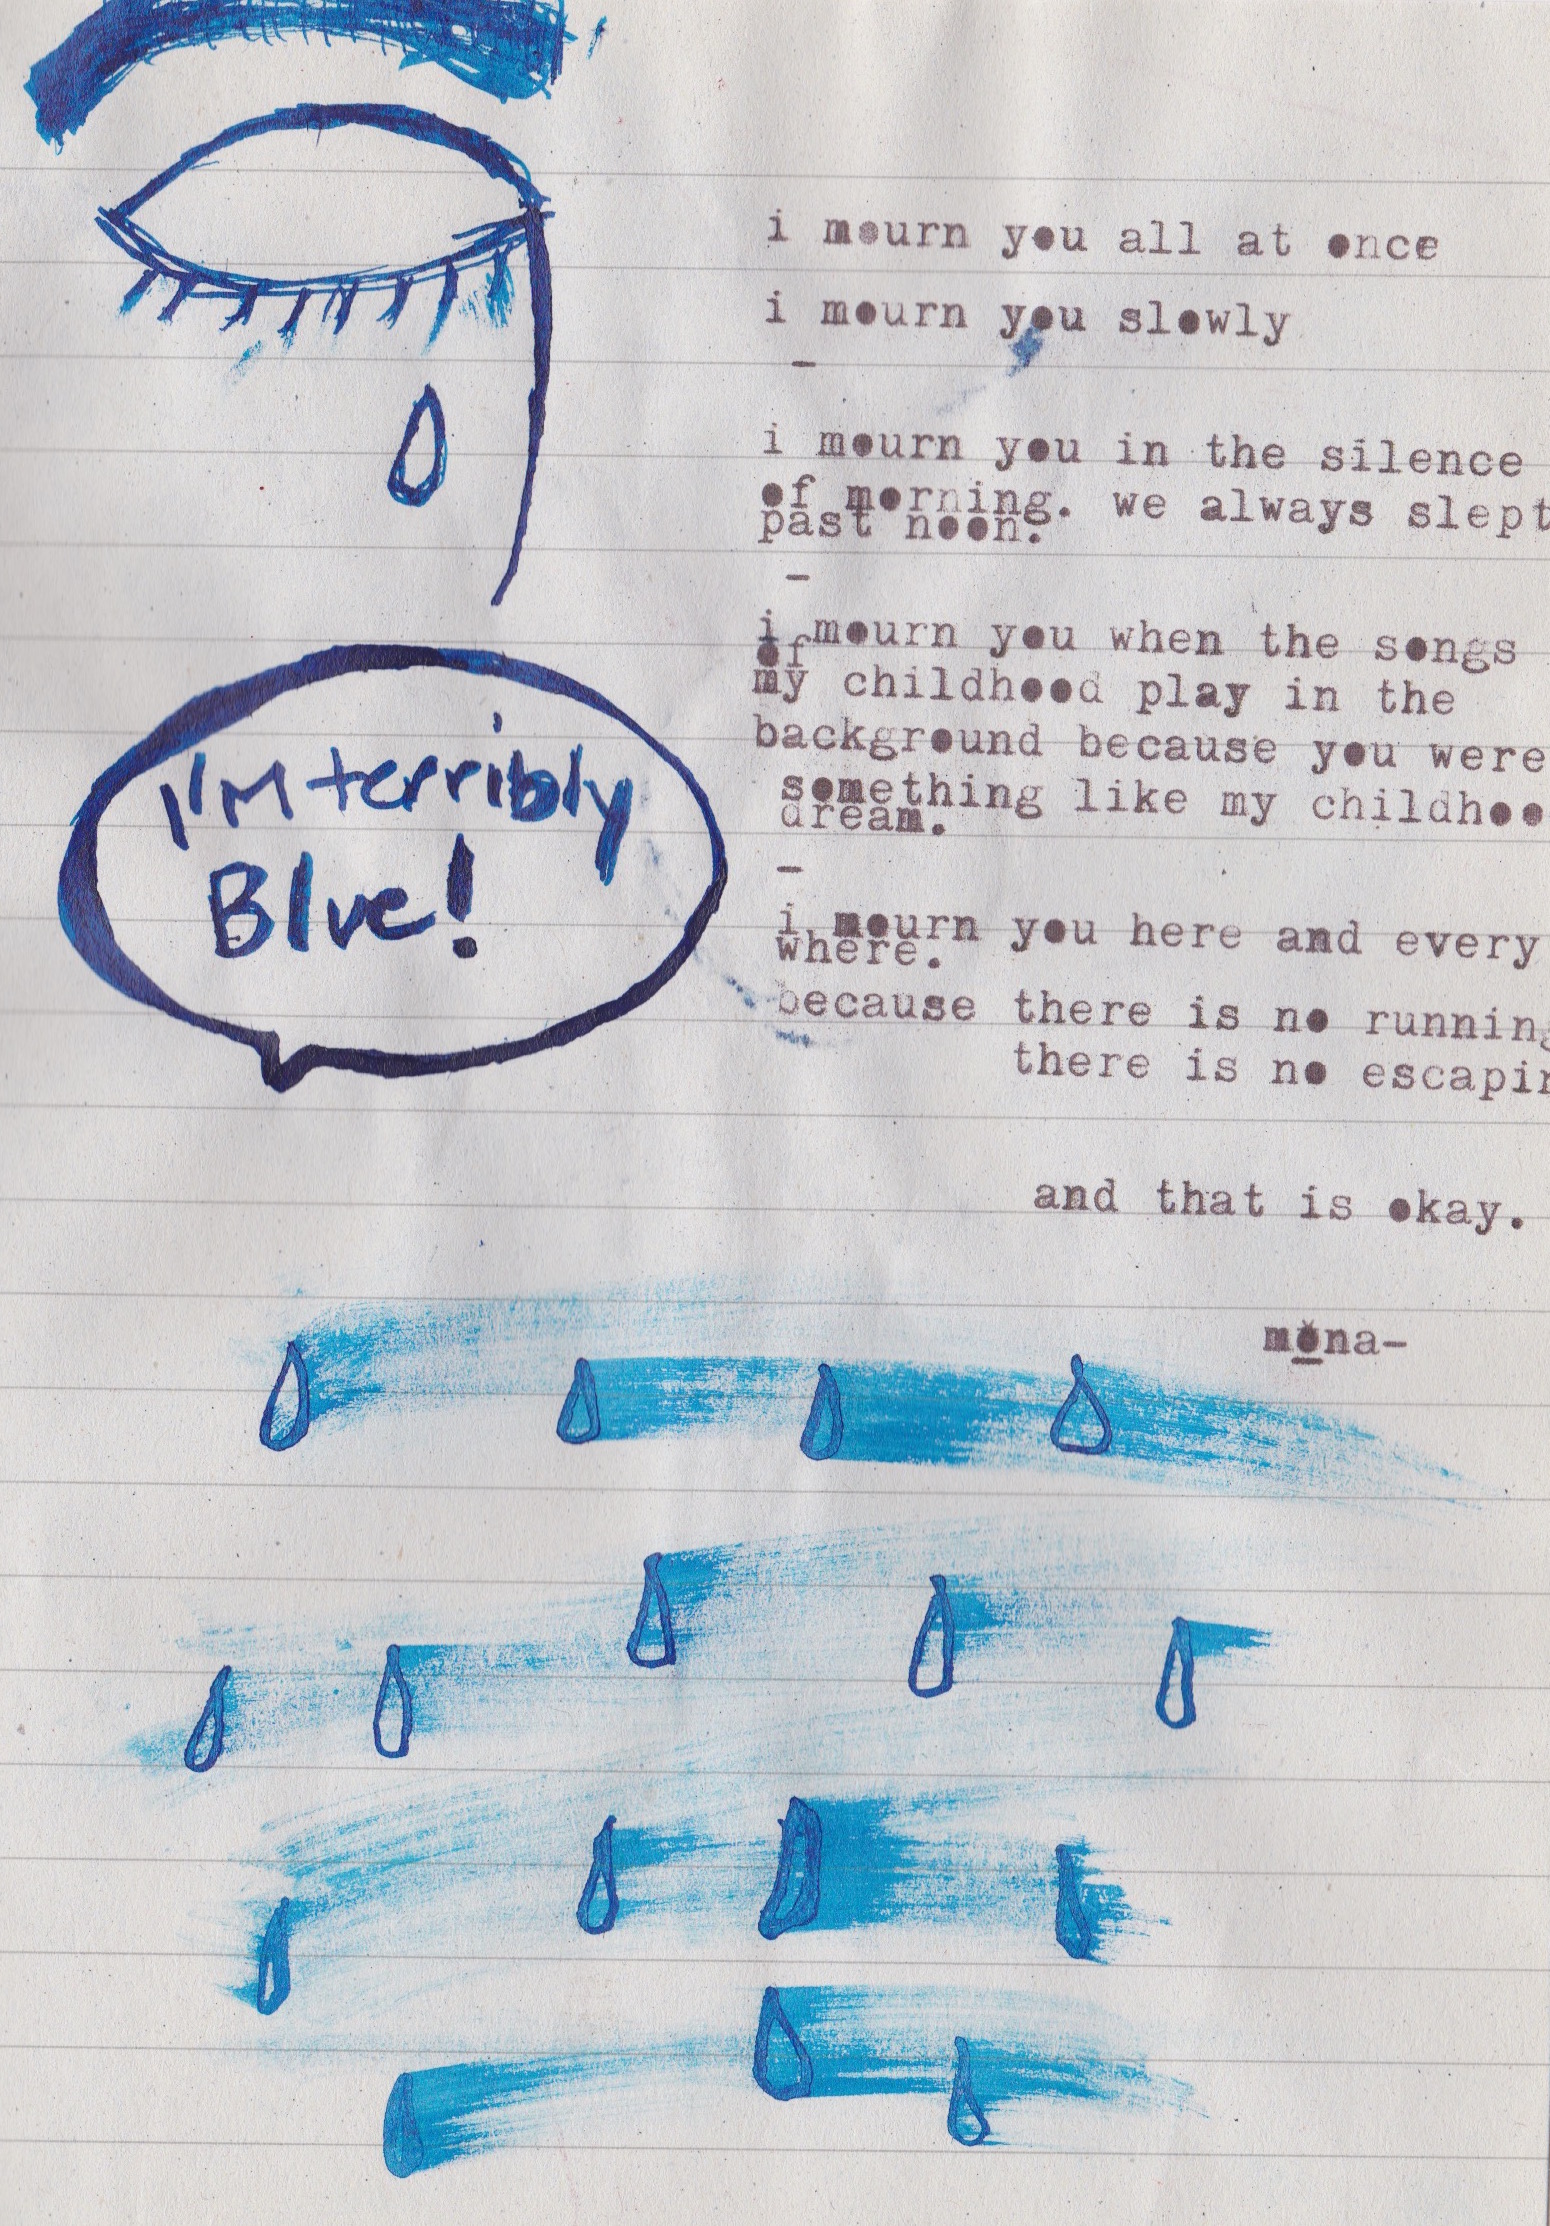 i mourn you all at once
i mourn you slowly
-
i mourn you in the silence
of morning. we always slept
past noon.
-
i mourn you when the songs
of
my childhood play in the
background because you were
something like my childhoo
dream.
-
i mourn you here and every
where.
because there is no running
there is no escapin
and that is okay.
mona-
I'M terribly
Blue!